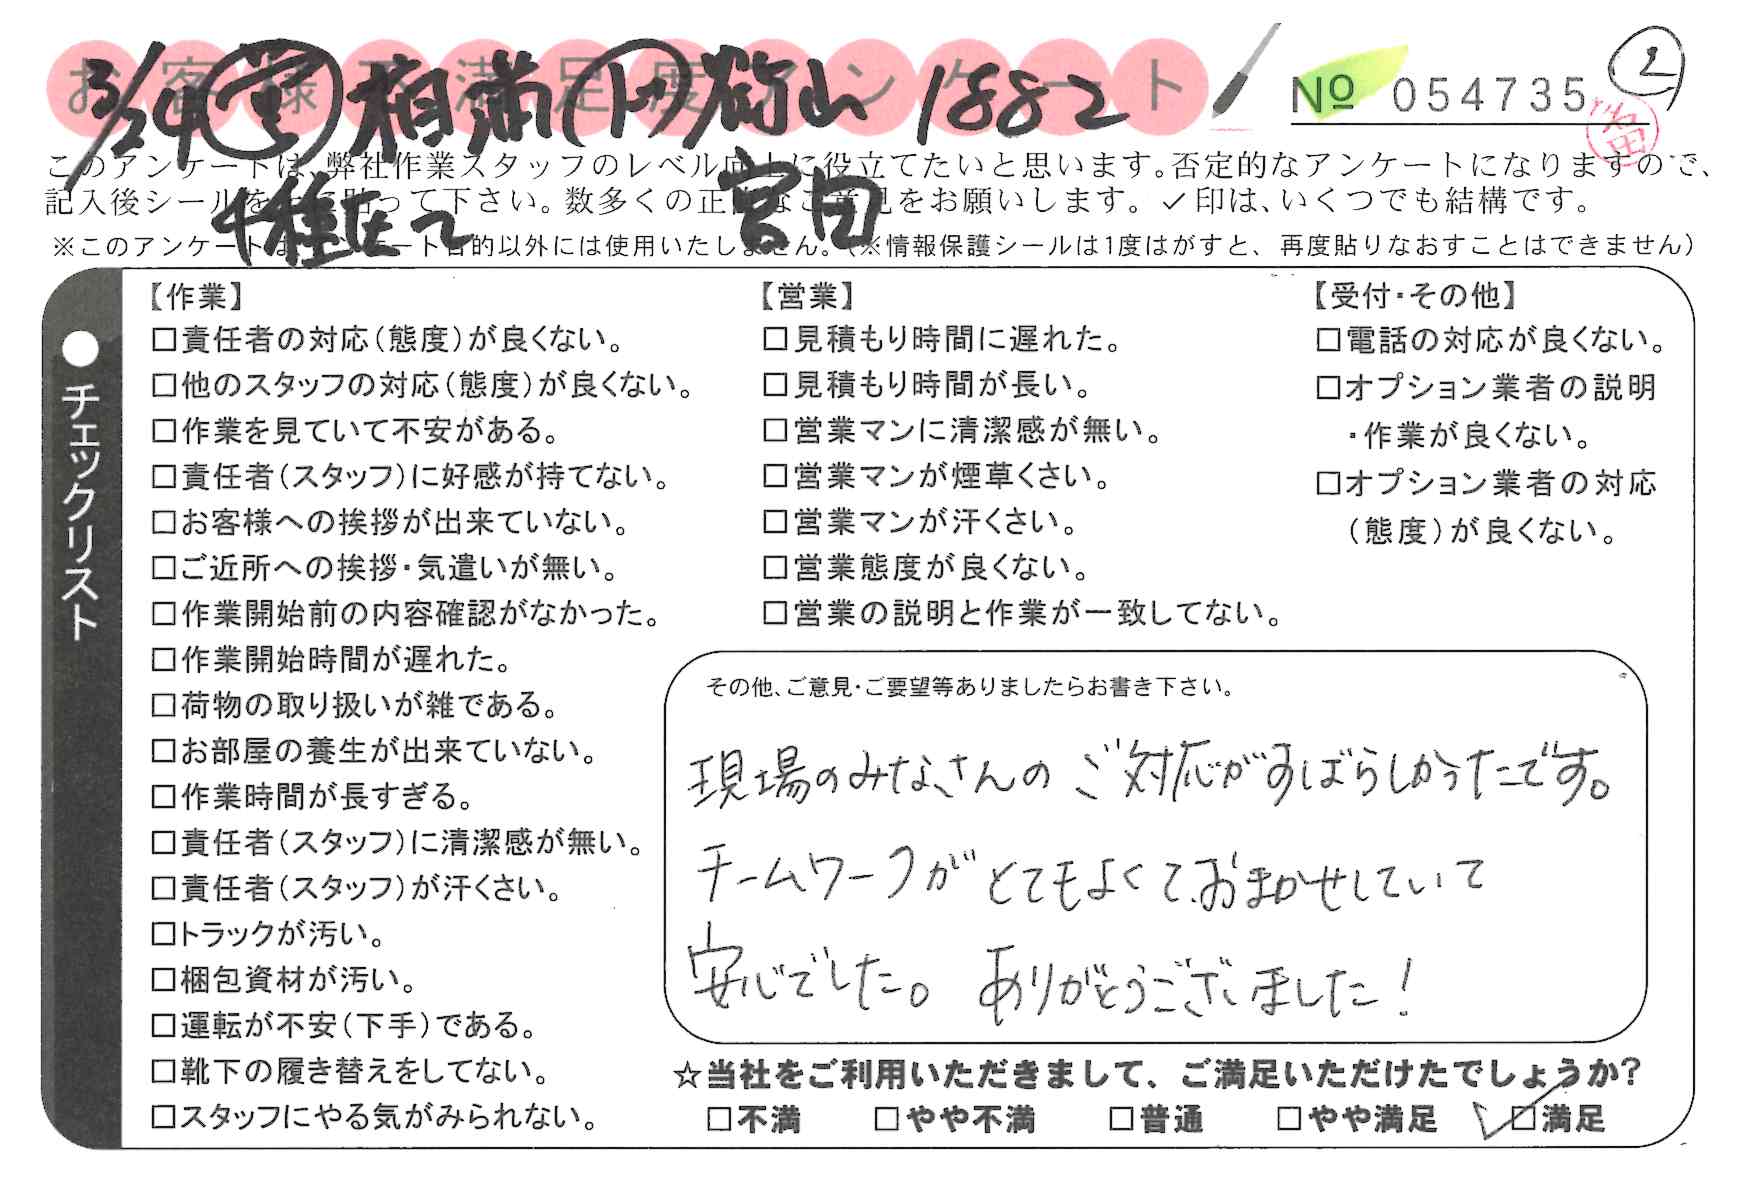 お客様不満足度アンケート
3/24 営 相浦 ト 狩山 1882
№ 054735
2
このアンケートは、弊社作業スタッフのレベル向上に役立てたいと思います。否定的なアンケートになりますので、
記入後シールを上に貼って下さい。数多くの正直なご意見をお願いします。✓印は、いくつでも結構です。
千種区2 宮田
※このアンケートはアンケート目的以外には使用いたしません。(※情報保護シールは1度はがすと、再度貼りなおすことはできません)
●チェックリスト
【作業】
□責任者の対応(態度)が良くない。
□他のスタッフの対応(態度)が良くない。
□作業を見ていて不安がある。
□責任者(スタッフ)に好感が持てない。
□お客様への挨拶が出来ていない。
□ご近所への挨拶・気遣いが無い。
□作業開始前の内容確認がなかった。
□作業開始時間が遅れた。
□荷物の取り扱いが雑である。
□お部屋の養生が出来ていない。
□作業時間が長すぎる。
□責任者(スタッフ)に清潔感が無い。
□責任者(スタッフ)が汗くさい。
□トラックが汚い。
□梱包資材が汚い。
□運転が不安(下手)である。
□靴下の履き替えをしてない。
□スタッフにやる気がみられない。
【営業】
□見積もり時間に遅れた。
□見積もり時間が長い。
□営業マンに清潔感が無い。
□営業マンが煙草くさい。
□営業マンが汗くさい。
□営業態度が良くない。
□営業の説明と作業が一致してない。
【受付・その他】
□電話の対応が良くない。
□オプション業者の説明
・作業が良くない。
□オプション業者の対応
(態度)が良くない。
その他、ご意見・ご要望等ありましたらお書き下さい。
現場のみなさんのご対応がすばらしかったです。
チームワークがとてもよくて、おまかせしていて
安心でした。ありがとうございました!
☆当社をご利用いただきまして、ご満足いただけたでしょうか?
□不満 □やや不満 □普通 □やや満足 ✓□満足